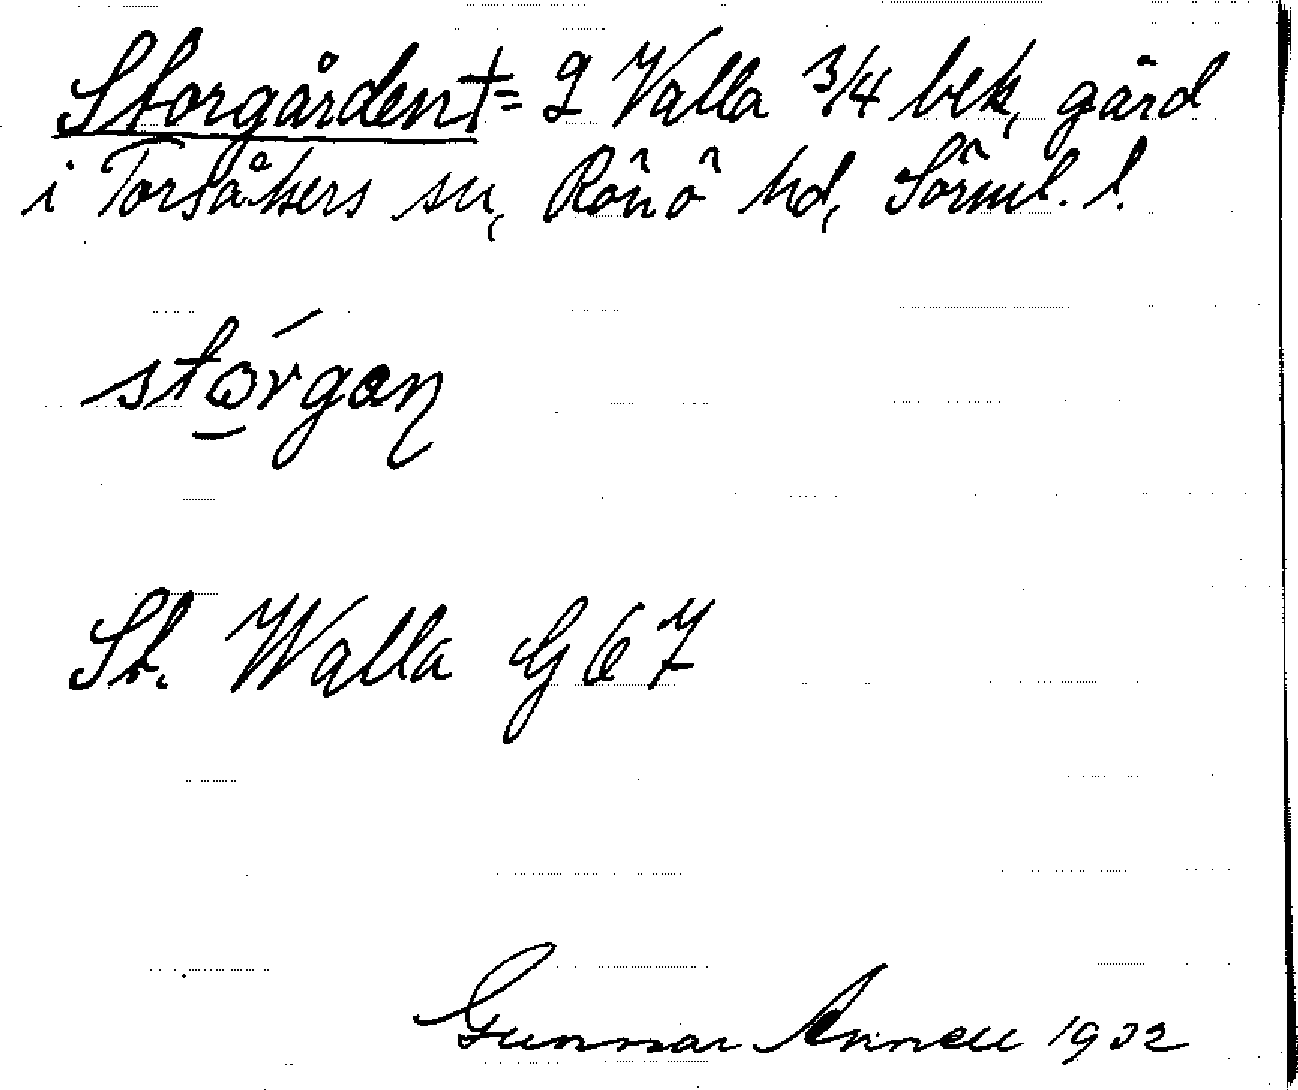 Storgården†= 2 Valla 3/4 bek, gård
i Torsåkers sn, Rönö hd, Sörml. l.
stǫ́rgan
St. Walla G 67
Gunnar Annell 1932